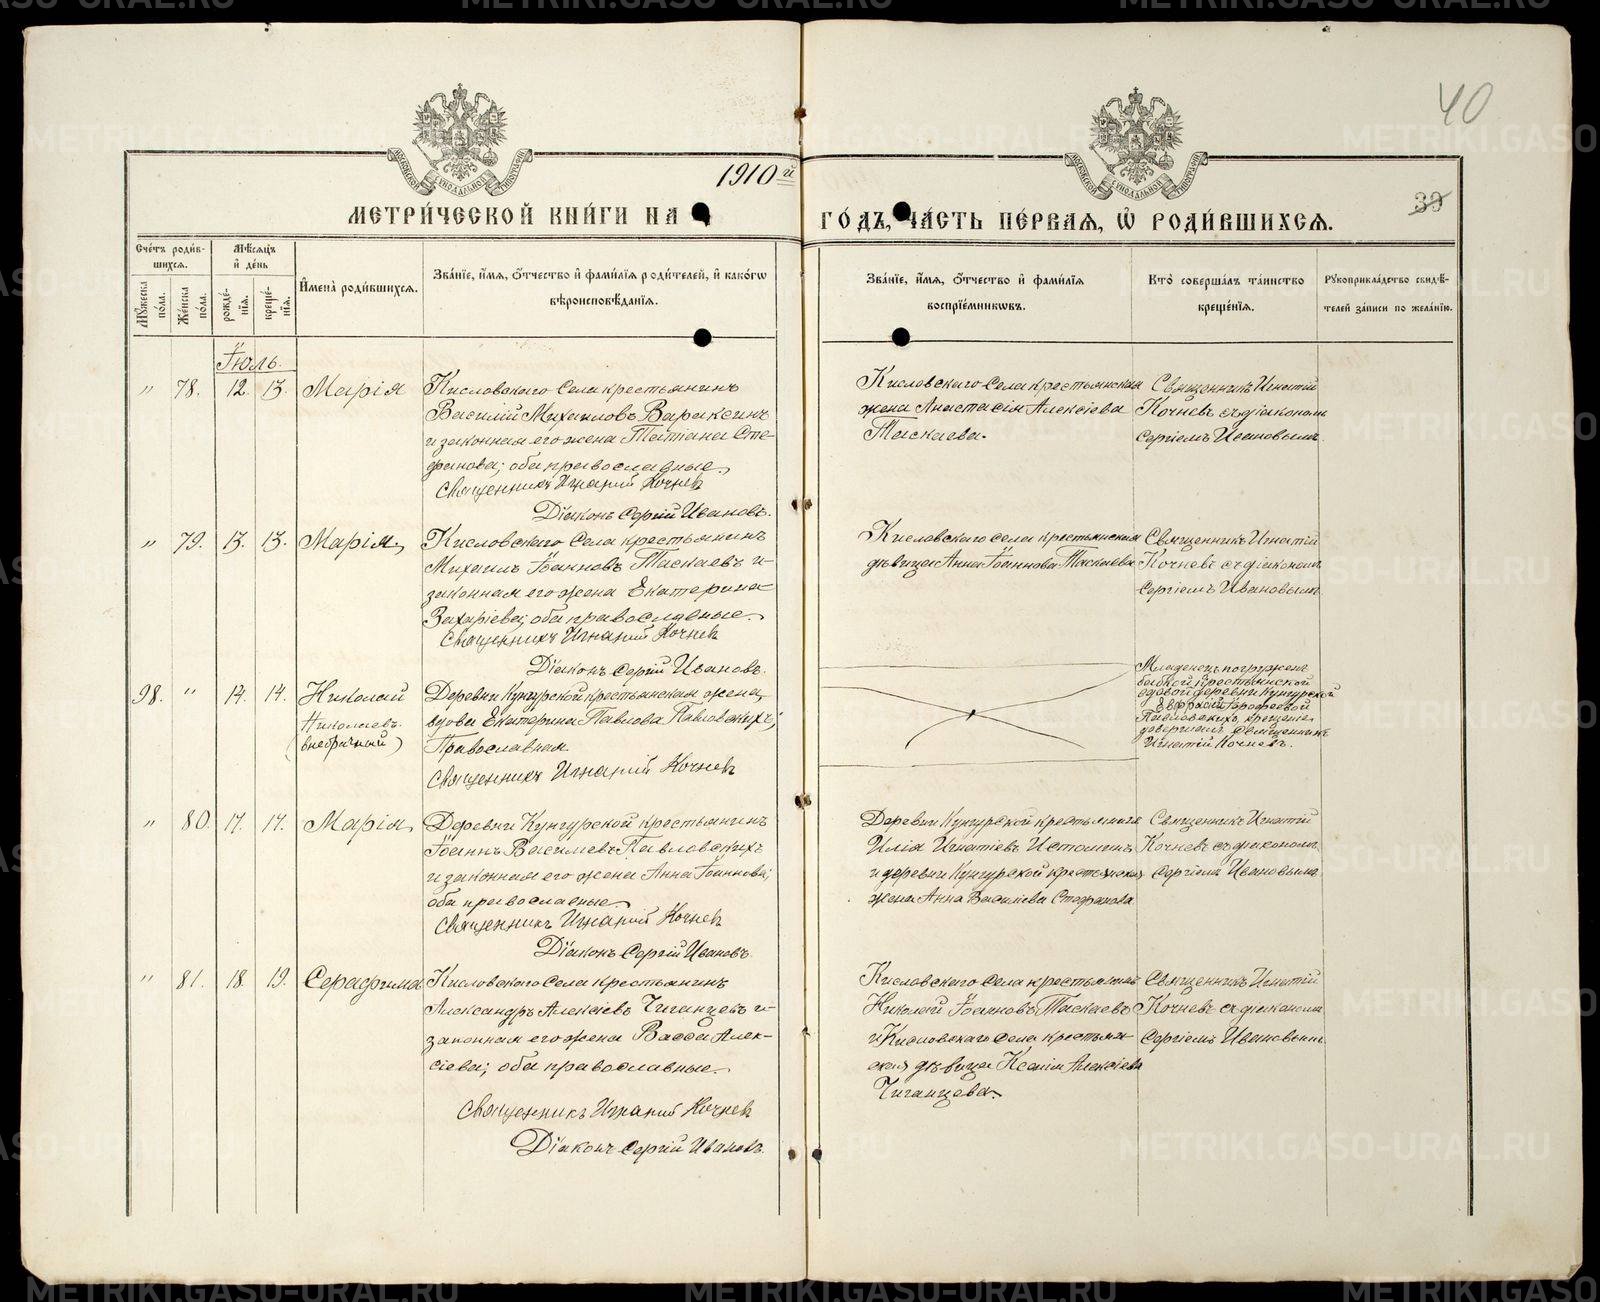 40
39
1910й
МЕТРИ́ЧЕСКОЙ КНИ́ГИ НА
ГО́ДЪ, ЧА́СТЬ ПЕ́РВАЯ, Ѡ҆ РОДИ́ВШИХСѦ.
Сче́тъ роди́в-
шихся.
Мꙋ́жеска пола.
Же́нска пола.
Мѣ́сяцъ
и҆ де́нь
рожде́-
нія.
креще́-
нія.
И҆мена̀ роди́вшихся.
Зва́нїе, и҆́мя, ѻ҆́тчество и҆ фами́лїя роди́телей, и҆ како́гѡ
вѣроисповѣ́данія.
Зва́нїе, и҆́мя, ѻ҆́тчество и҆ фами́лїя
воспрїе́мникѡвъ.
Кто̀ соверша́лъ та́инство
креще́нїя.
Рꙋкоприкла́дство свидѣ́-
телей за́писи по жела́нїю.
Іюль.
" 78. 12. 13. Марія
Кисловскаго Села крестьянинъ
Василій Михаиловъ Вараксинъ
и законная его жена Татіана Сте-
фанова; оба православные.
Священникъ Игнатій Кочнев
Діаконъ Сергій Ивановъ.
Кисловскаго Села крестьянская
жена Анастасія Алексіева
Таскаева.
Священникъ Игнатій
Кочневъ съ діакономъ
Сергіемъ Ивановымъ
" 79. 13. 13. Марія,
Кисловскаго Села крестьянинъ
Михаилъ Іоанновъ Таскаевъ и
законная его жена Екатерина
Захаріева; оба православные.
Священникъ Игнатій Кочнев
Діаконъ Сергій Ивановъ.
Кисловскаго села крестьянская
дѣвица Анна Іоаннова Таскаева
Священникъ Игнатій
Кочневъ съ діакономъ
Сергіемъ Ивановымъ
98. " 14. 14. Николай
Николаевъ
(внебрачный)
Деревни Кунгурской крестьянская жена,
вдова Екатерина Павлова Павловскихъ;
Православная.
Священникъ Игнатій Кочнев
Младенецъ погруженъ
бабкой крестьянской
вдовой деревни Кунгурской
Евфросій Дорофеевой
Павловскихъ, крещеніе
довершилъ Священникъ
Игнатій Кочневъ.
" 80. 17. 17. Марія,
Деревни Кунгурской крестьянинъ
Іоаннъ Василиевъ Павловскихъ
и законная его жена Анна Іоаннова;
оба православные.
Священникъ Игнатій Кочнев
Діаконъ Сергій Ивановъ.
Деревни Кунгурской крестьянинъ
Илія Игнатіевъ Истоминъ
и деревни Кунгурской крестьянская
жена Анна Василіева Стафанова
Священникъ Игнатій
Кочневъ съ діакономъ
Сергіемъ Ивановымъ
" 81. 18. 19. Серафима
Кисловскаго Села крестьянинъ
Александръ Алексіевъ Чиганцевъ и
законная его жена Васса Алек-
сіева; оба православные.
Священникъ Игнатій Кочнев
Діаконъ Сергій Ивановъ.
Кисловскаго Села крестьянинъ
Николай Іоанновъ Таскаевъ
и Кисловскаго Села крестьян-
ская дѣвица Ксенія Алексіева
Чиганцева.
Священникъ Игнатій
Кочневъ съ діакономъ
Сергіемъ Ивановымъ
METRIKI.GASO-URAL.RU